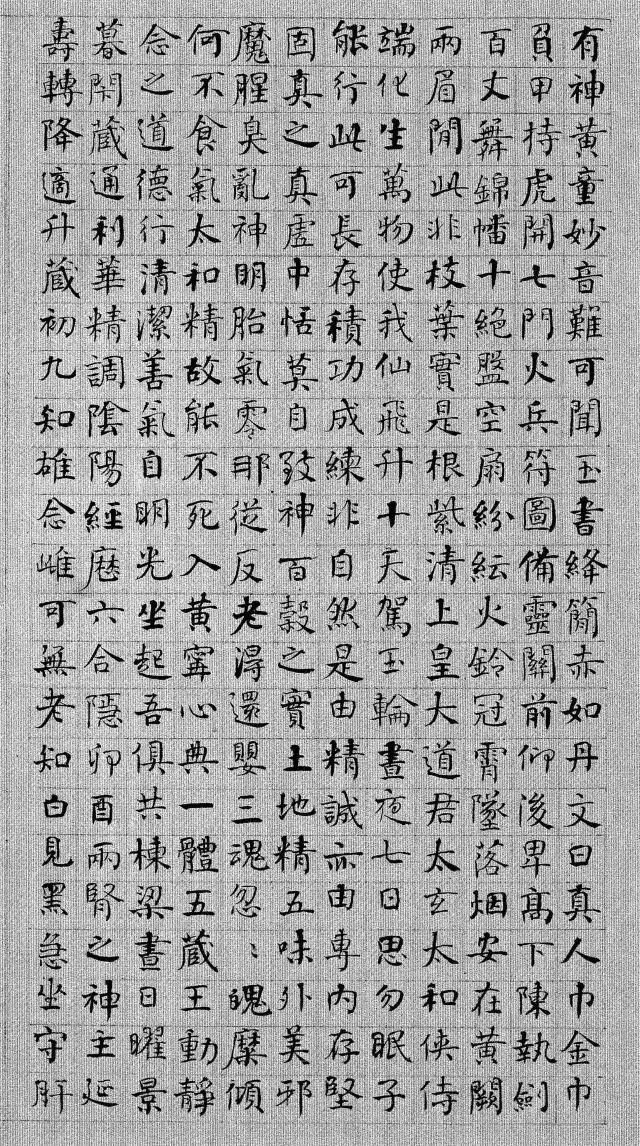 有神黄童妙音難可聞玉書絳簡赤如丹文曰真人巾金巾
負甲持虎開七門火兵符圖備靈關前仰後卑高下陳執劍
百丈舞錦幡十絶盤空扇紛紜火鈴冠霄墜落烟安在黄闕
兩眉間此非枝葉實是根紫清上皇大道君太玄太和俠侍
端化生萬物使我仙飛升十天駕玉輪晝夜七日思勿眠子
能行此可長存積功成練非自然是由精誠亦由專内存堅
固真之真虛中恬莫自致神百穀之實土地精五味外美邪
魔腥臭亂神明胎氣零那從反老得還嬰三魂忽〻魄糜傾
何不食氣太和精故能不死入黄寧心典一體五蔵王動靜
念之道德行清潔善氣自明光坐起吾俱共棟梁晝日曜景
暮閇蔵通利華精調陰陽經歷六合隱卯酉兩腎之神主延
壽轉降適升蔵初九知雄念雌可無老知白見黑急坐守肝